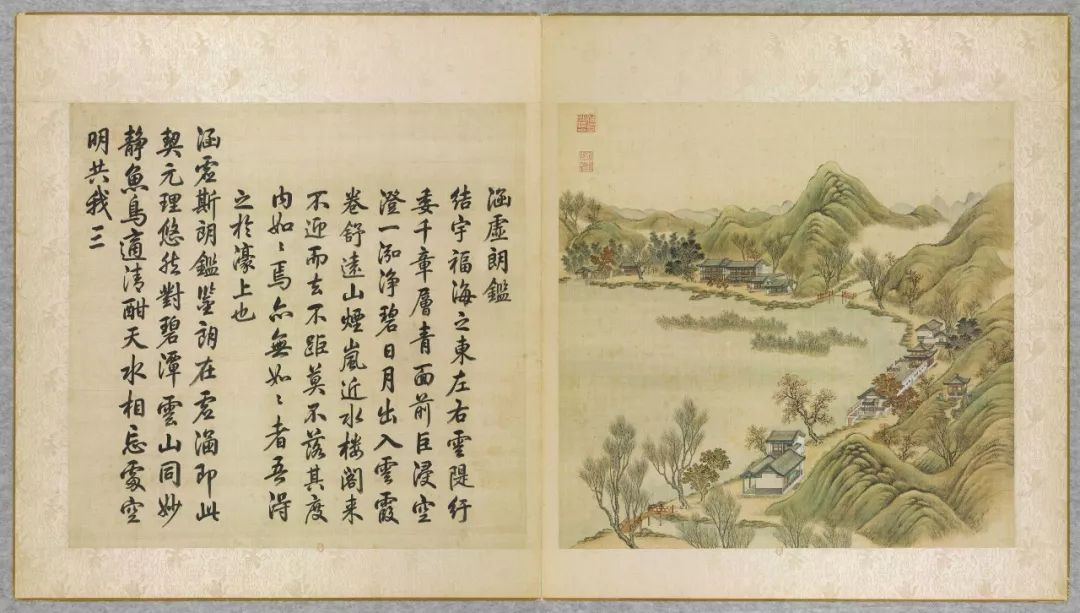 涵虛朗鑑
結宇福海之東左右雲隄紆
委千章層青面前巨浸空
澄一泓淨碧日月出入雲霞
卷舒遠山煙嵐近水樓閣来
不迎而去不距莫不落其度
内如〻焉亦無如〻者吾得
之於濠上也
涵虛斯朗鑑鑒朗在虛涵即此
契元理悠然對碧潭雲山同妙
靜魚鳥適清酣天水相忘處空
明共我三